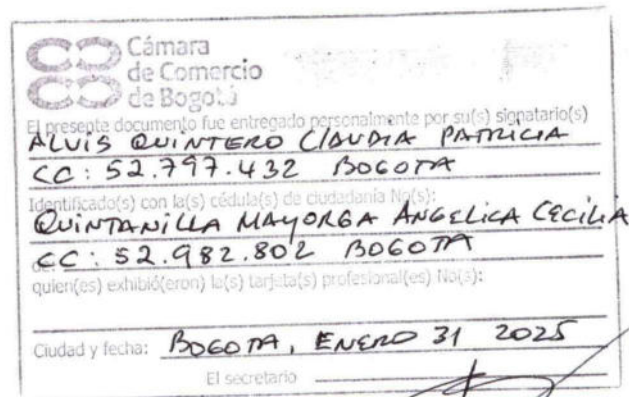 Cámara
de Comercio
de Bogotá
El presente documento fue entregado personalmente por su(s) signatario(s)
ALVIS QUINTERO CLAUDIA PATRICIA
CC: 52.797.432 BOGOTA
Identificado(s) con la(s) cédula(s) de ciudadanía No(s):
QUINTANILLA MAYORGA ANGELICA CECILIA
CC: 52.982.802 BOGOTA
de:
quien(es) exhibió(eron) la(s) tarjeta(s) profesional(es) No(s):
Ciudad y fecha: BOGOTA, ENERO 31 2025
El secretario